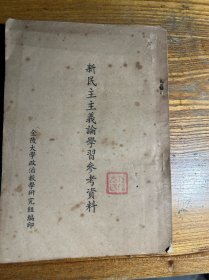 新民主主義論學習參考資料
金陵大學政治教學研究組編印